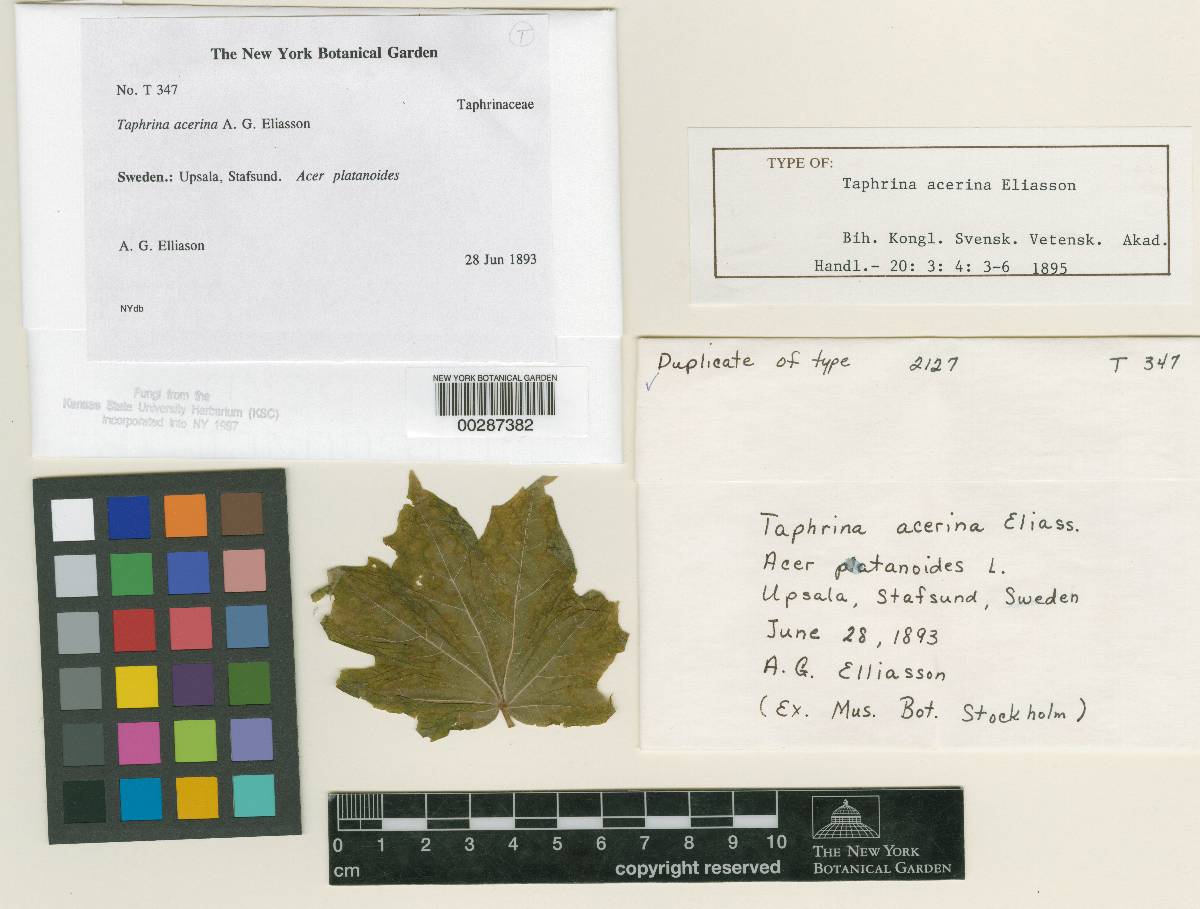 T
The New York Botanical Garden
No. T 347
Taphrinaceae
Taphrina acerina A. G. Eliasson
Sweden.: Upsala, Stafsund. Acer platanoides
A. G. Elliason
28 Jun 1893
NYdb
Fungi from the
Kansas State University Herbarium (KSC)
Incorporated into NY 1997
NEW YORK BOTANICAL GARDEN
00287382
TYPE OF:
Taphrina acerina Eliasson
Bih. Kongl. Svensk. Vetensk. Akad.
Handl.- 20: 3: 4: 3-6 1895
Duplicate of type 2127 T 347
Taphrina acerina Eliass.
Acer platanoides L.
Upsala, Stafsund, Sweden
June 28, 1893
A. G. Elliasson
(Ex. Mus. Bot. Stockholm)
0 1 2 3 4 5 6 7 8 9 10
cm
copyright reserved
THE NEW YORK
BOTANICAL GARDEN